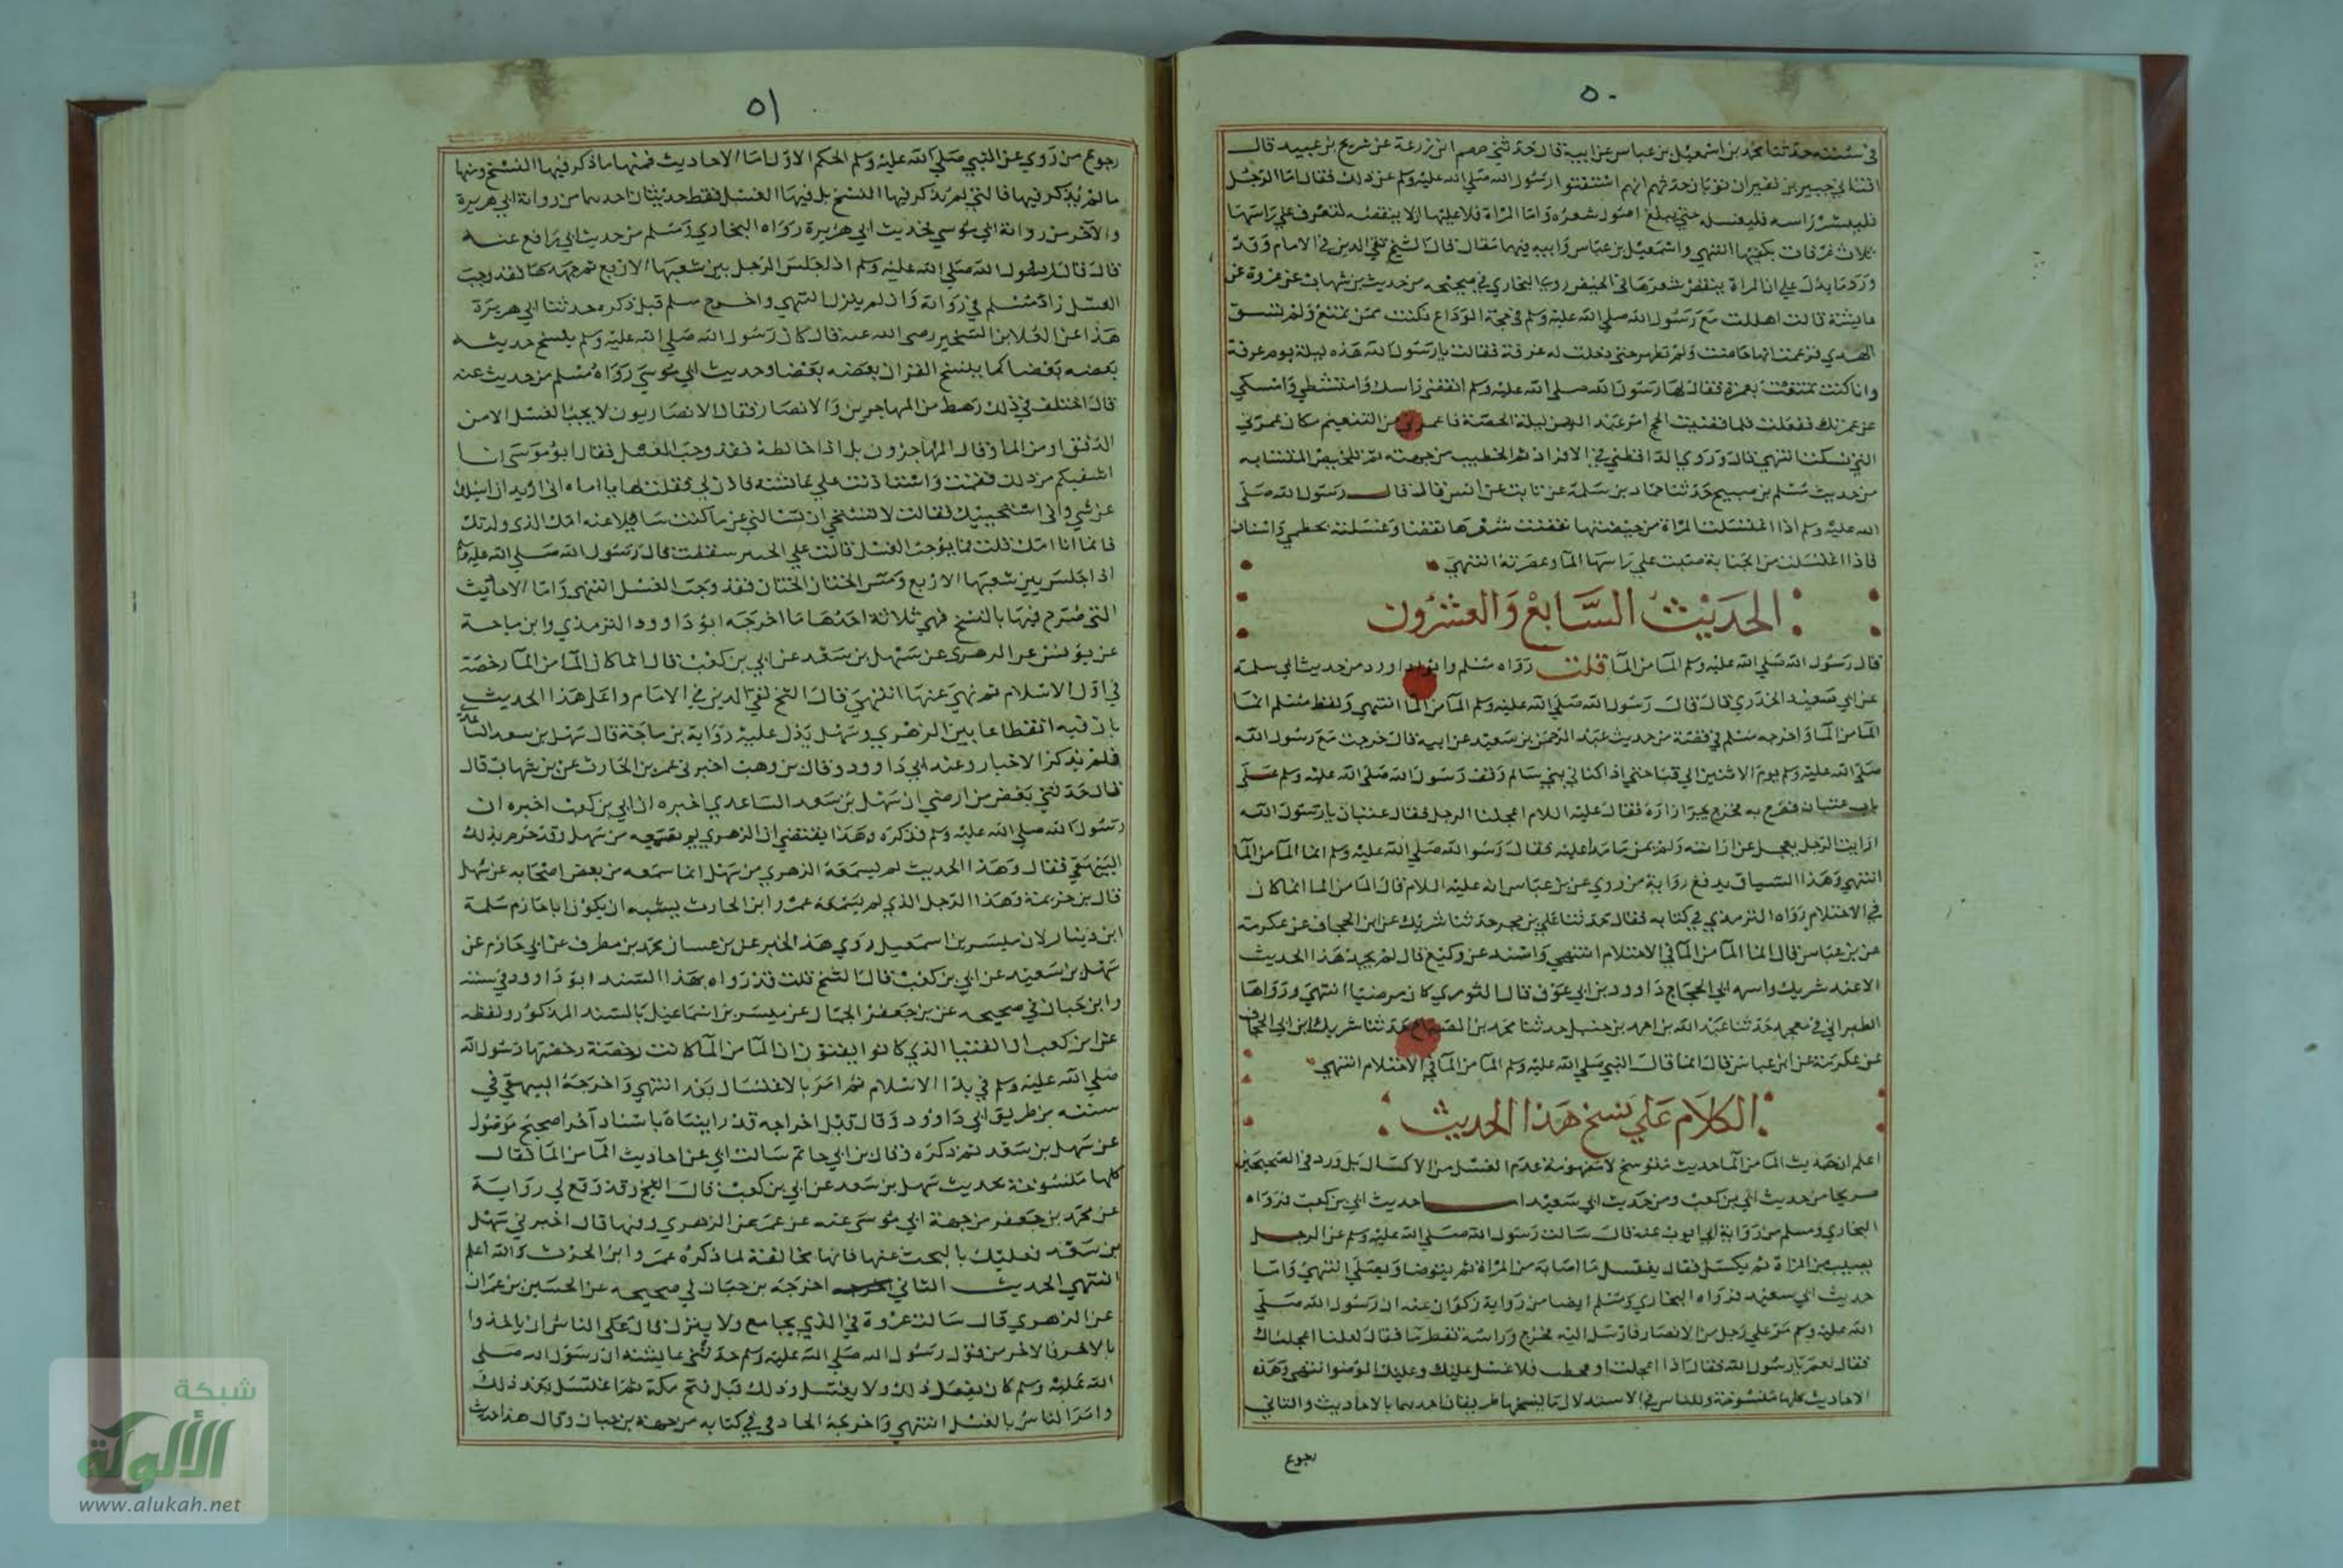 ٥٠
في سننه حدثنا محمد بن اسمعيل بن عياش عن ابيه قال حدثني ضمضم ابن زرعة عن شريح بن عبيد قال
افتاني جبير بن نفير ان ثوبان حدثهم انهم استفتوا رسول الله صلي الله عليه وسلم عن ذلك فقال اما الرجل
فلينشر راسه فليغسله حتي يبلغ اصول شعره واما المراة فلا عليها ان لا تنقضه لتغرف علي راسها
ثلاث غرفات بكفيها انتهي واسمعيل بن عياش وابيه فيهما مقال قال الشيخ تقي الدين في الامام وقد
ورد ما يدل علي ان المراة تنقض شعرها في الحيض روي البخاري في صحيحه من حديث بن شهاب عن عروة عن
عايشة قالت اهللت مع رسول الله صلي الله عليه وسلم في حجة الوداع فكنت ممن تمتع ولم تسق
الهدي فزعمت انها حاضت ولم تطهر حتي دخلت له عرفة فقالت يا رسول الله هذه ليلة يوم عرفة
وانا كنت تمتعت بعمرة فقال لها رسول الله صلي الله عليه وسلم انقضي راسك وامتشطي وامسكي
عن عمرتك ففعلت فلما قضيت الحج امر عبد الرحمن ليلة الحصبة فاعمرني من التنعيم مكان عمرتي
التي نسكنا انتهي قال وروي الدارقطني في الافراد ثم الخطيب من جهته في تلخيص المتشابه
من حديث مسلم بن صبيح حدثنا حماد بن سلمة عن ثابت عن انس قال قال رسول الله صلي
الله عليه وسلم اذا اغتسلت المراة من حيضتها نقضت شعرها نقضا وغسلته بخطمي واشنان
فاذا اغتسلت من الجنابة صبت علي راسها الما وعصرته انتهي
الحديث السابع والعشرون
قال رسول الله صلي الله عليه وسلم الما من الما قلت رواه مسلم وابو داوود من حديث ابي سلمة
عن ابي سعيد الخدري قال قال رسول الله صلي الله عليه وسلم الما من الما انتهي ولفظ مسلم انما
الما من الما واخرجه مسلم في قصة من حديث عبد الرحمن بن سعيد عن ابيه قال خرجت مع رسول الله
صلي الله عليه وسلم يوم الاثنين الي قبا حتي اذا كنا في بني سالم وقف رسول الله صلي الله عليه وسلم علي
باب عتبان فصرخ به فخرج يجر ازاره فقال عليه السلام اعجلنا الرجل فقال عتبان يا رسول الله
ارايت الرجل يعجل عن امراته ولم يمن ماذا عليه فقال رسول الله صلي الله عليه وسلم انما الما من الما
انتهي وهذا السياق يدفع رواية من روي عن بن عباس انه عليه السلام قال الما من الما انما كان
في الاحتلام رواه الترمذي في كتابه فقال حدثنا علي بن حجر حدثنا شريك عن ابن الحجاف عن عكرمة
عن بن عباس قال انما الما من الما في الاحتلام انتهي واسند عن وكيع قال لم يجد هذا الحديث
الا عند شريك واسم ابي الحجاج داوود بن ابي عوف قال الثوري كان مرضيا انتهي ورواها
الطبراني في معجمه حدثنا عبد الله بن احمد بن حنبل حدثنا محمد بن الصباح حدثنا شريك ابن ابي الحجاف
عن عكرمة عن ابن عباس قال انما قال النبي صلي الله عليه وسلم الما من الما في الاحتلام انتهي
الكلام علي نسخ هذا الحديث
اعلم ان حديث الما من الما حديث منسوخ لا مفهومه عدم الغسل من الاكسال بل ورد في الصحيحين
صريحا من حديث ابي بن كعب ومن حديث ابي سعيد اما حديث ابي بن كعب فرواه
البخاري ومسلم من رواية ابي ايوب عنه قال سالت رسول الله صلي الله عليه وسلم عن الرجل
يصيب من المراة ثم يكسل فقال يغسل ما اصابه من المراة ثم يتوضا ويصلي انتهي واما
حديث ابي سعيد فرواه البخاري ومسلم ايضا من رواية ذكوان عنه ان رسول الله صلي
الله عليه وسلم مر علي رجل من الانصار فارسل اليه فخرج وراسه تقطر ما فقال لعلنا اعجلناك
فقال نعم يا رسول الله فقال اذا اعجلت او قحطت فلا غسل عليك وعليك الوضوا انتهي وهذه
الاحاديث كلها منسوخة وللناس في الاستدلال ما ينسخها طريقان احدهما بالاحاديث والثاني
رجوع
٥١
رجوع من روي عن النبي صلي الله عليه وسلم الحكم الاول اما الاحاديث فمنها ما ذكر فيها النسخ ومنها
ما لم يذكر فيها فالتي لم يذكر فيها النسخ بل فيها الغسل فقط حديثان احدهما من رواية ابي هريرة
والآخر من رواية ابي موسي فحديث ابي هريرة رواه البخاري ومسلم من حديث ابي رافع عنه
قال قال رسول الله صلي الله عليه وسلم اذا جلس الرجل بين شعبها الاربع ثم جهدها فقد وجب
الغسل زاد مسلم في رواية وان لم ينزل انتهي واخرج مسلم قبل ذكره حديثنا ابي هريرة
هذا عن العلا بن الشخير رضي الله عنه قال كان رسول الله صلي الله عليه وسلم ينسخ حديثه
بعضه بعضا كما ينسخ القران بعضه بعضا وحديث ابي موسي رواه مسلم من حديث عنه
قال اختلف في ذلك رهط من المهاجرين والانصار فقال الانصاريون لا يجب الغسل الا من
الدفق او من الما وقال المهاجرون بل اذا خالط فقد وجب الغسل فقال ابو موسي انا
اشفيكم من ذلك فقمت واستاذنت علي عائشة فاذن لي فقلت لها يا اماه اني اريد ان اسلك
عن شي واني استحييك فقالت لا تستحي ان تسالني عن ما كنت سايلا عنه امك الذي ولدتك
فانما انا امك قلت فما يوجب الغسل قالت علي الخبير سقطت قال رسول الله صلي الله عليه وسلم
اذا جلس بين شعبها الاربع ومس الختان الختان فقد وجب الغسل انتهي واما الاحاديث
التي صرح فيها بالنسخ فهي ثلاثة احدها ما اخرجه ابو داوود الترمذي وابن ماجة
عن يونس عن الزهري عن سهل بن سعد عن ابي بن كعب قال انما كان الما من الما رخصة
في اول الاسلام ثم نهي عنها انتهي قال الشيخ تقي الدين في الامام واعل هذا الحديث
بان فيه انقطاعا بين الزهري وسهل يدل عليه رواية بن ماجة قال سهل بن سعد الساعدي
فلم يذكر الاخبار وعند ابي داوود وقال بن وهب اخبرني عمر بن الحارث عن بن شهاب قال
قال حدثني بعض من ارضي ان سهل بن سعد الساعدي اخبره ان ابي بن كعب اخبره ان
رسول الله صلي الله عليه وسلم فذكره وهذا يقتضي ان الزهري لم يسمعه من سهل وقد جزم بذلك
البيهقي فقال وهذا الحديث لم يسمعه الزهري من سهل انما سمعه من بعض اصحابه عن سهل
قال بن خزيمة وهذا الرجل الذي لم يسمه عمرو ابن الحارث يشبه ان يكون ابا حازم سلمة
ابن دينار لان ميسر بن اسمعيل روي هذا الخبر عن بن غسان محمد بن مطرف عن ابي حازم عن
سهل بن سعيد عن ابي بن كعب قال الشيخ قلت قد رواه بهذا السند ابو داوود في سننه
وابن حبان في صحيحه عن بن جعفر الجمال عن ميسر بن اسماعيل بالسند المذكور ولفظه
عن ابن كعب ان الفتيا الذي كانوا يفتون ان الما من الما كانت رخصة رخصها رسول الله
صلي الله عليه وسلم في بدا الاسلام ثم امر بالاغتسال بعد انتهي واخرجه البيهقي في
سننه من طريق ابي داوود وقال قبل اخراجه قد رايناه باسناد آخر صحيح موصول
عن سهل بن سعد ثم ذكره وقال بن ابي حاتم سالت ابي عن احاديث الما من الما فقال
كلها منسوخة بحديث سهل بن سعد عن ابي بن كعب قال الشيخ وقد وقع لي رواية
عن محمد بن جعفر من جهة ابي موسي عنه عن عمر عن الزهري وفيها قال اخبرني سهل
بن سعد فعليك بالبحث عنها فانها مخالفة لما ذكره عمرو ابن الحرث والله اعلم
انتهي الحديث الثاني اخرجه بن حبان في صحيحه عن الحسين بن عمران
عن الزهري قال سالت عروة في الذي يجامع ولا ينزل قال علي الناس ان ياخذوا
بالاخر فالاخر من قول رسول الله صلي الله عليه وسلم حدثتني عايشة ان رسول الله صلي
الله عليه وسلم كان يفعل ذلك ولا يغتسل وذلك قبل فتح مكة ثم اغتسل بعد ذلك
وامر الناس بالغسل انتهي واخرجه الحادمي في كتابه من جهة بن حبان وقال هذا حديث
شبكة
الألوكة
www.alukah.net